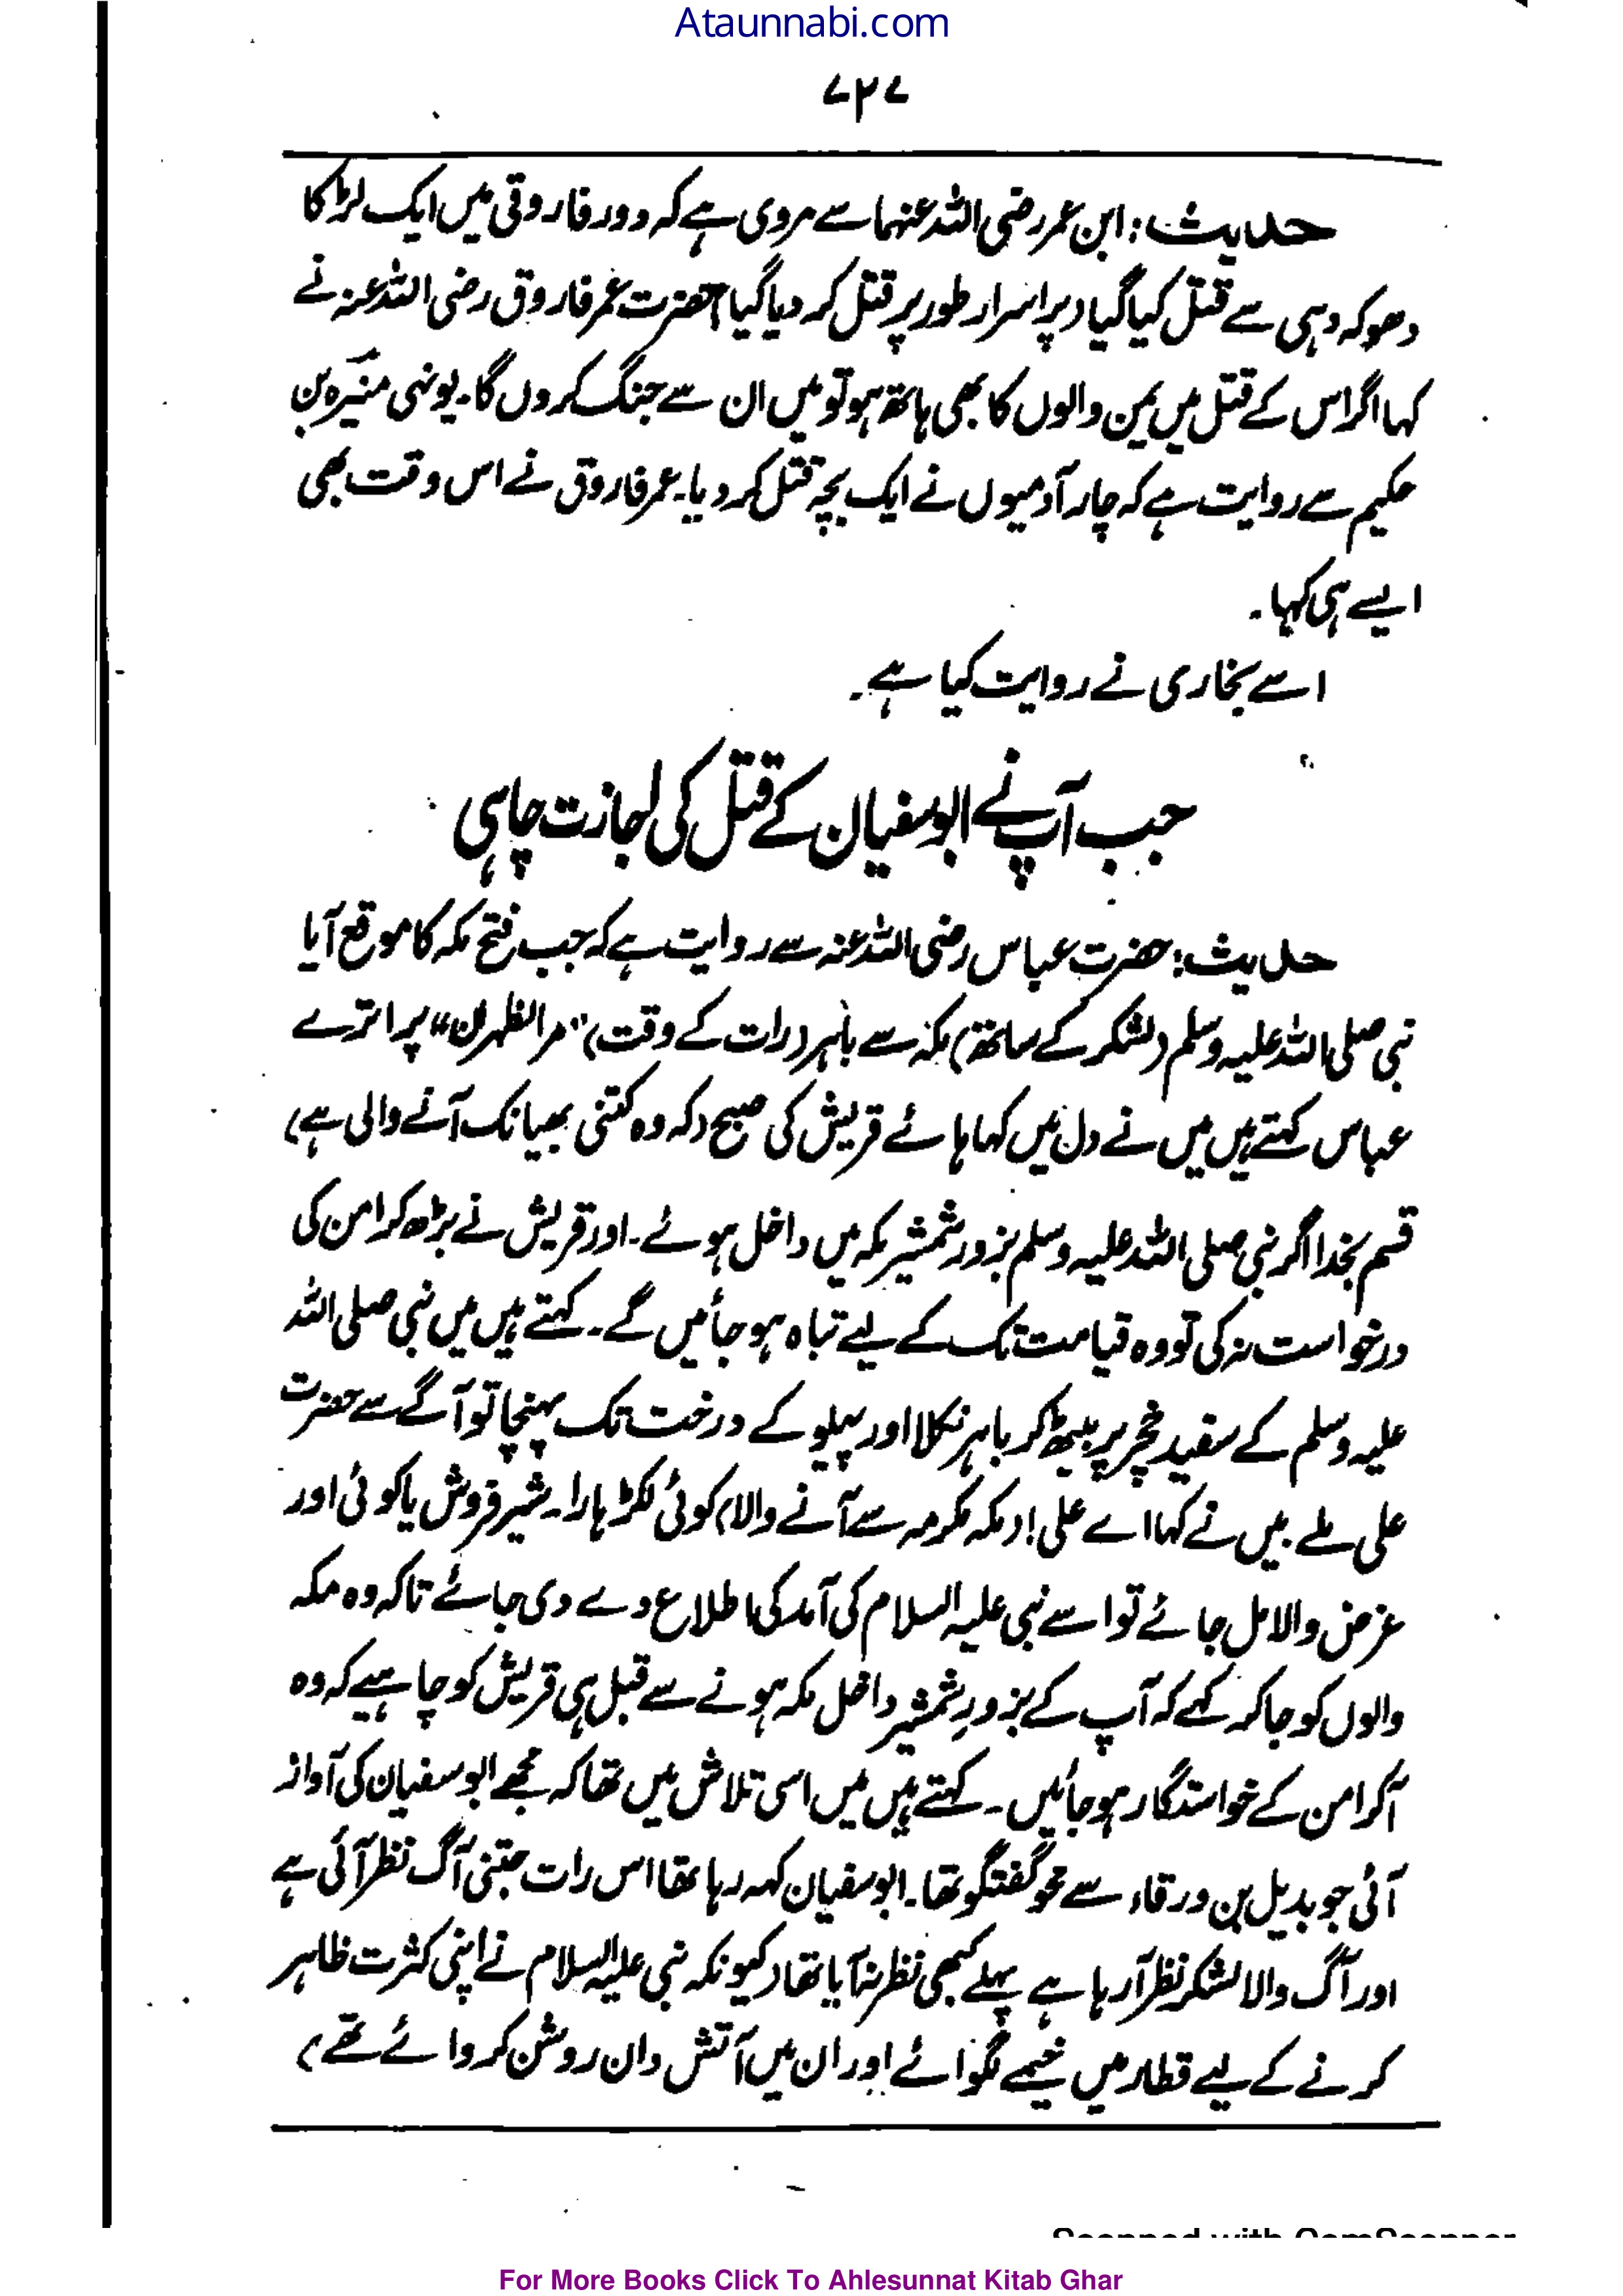 Ataunnabi.com
۷۲۷
حدیث: ابن عمر رضی اللہ عنہما سے مروی ہے کہ دور فاروقی میں ایک لڑکا
دھوکہ دہی سے قتل کیا گیا (پراسرار طور پر قتل کر دیا گیا) حضرت عمر فاروق رضی اللہ عنہ نے
کہا اگر اس کے قتل میں یمن والوں کا بھی ہاتھ ہو تو میں ان سے جنگ کر دوں گا۔ یونہی منیرہ بن
حکیم سے روایت ہے کہ چار آدمیوں نے ایک بچہ قتل کر دیا۔ عمر فاروق نے اس وقت بھی
ایسے ہی کہا۔
اسے بخاری نے روایت کیا ہے۔
جب آپ نے ابوسفیان کے قتل کی اجازت چاہی
حدیث: حضرت عباس رضی اللہ عنہ سے روایت ہے کہ جب فتح مکہ کا موقع آیا
نبی صلی اللہ علیہ وسلم (لشکر کے ساتھ) مکہ سے باہر (رات کے وقت) "مر الظہران" پر اترے
عباس کہتے ہیں میں نے دل میں کہا ہائے قریش کی صبح (کہ وہ کتنی بھیانک آنے والی ہے)
قسم بخدا اگر نبی صلی اللہ علیہ وسلم بزور شمشیر مکہ میں داخل ہوئے۔ اور قریش نے بڑھ کر امن کی
درخواست نہ کی تو وہ قیامت تک کے لیے تباہ ہو جائیں گے۔ کہتے ہیں میں نبی صلی اللہ
علیہ وسلم کے سفید خچر پر بیٹھ کر باہر نکلا اور پیلو کے درخت تک پہنچا تو آگے سے حضرت
علی ملے۔ میں نے کہا اے علی! (مکہ مکرمہ سے آنے والا) کوئی لکڑہارا۔ شیر فروش یا کوئی اور
غرض والا مل جائے تو اسے نبی علیہ السلام کی آمد کی اطلاع دے دی جائے تاکہ وہ مکہ
والوں کو جا کر کہے کہ آپ کے بزورِ شمشیر داخل مکہ ہونے سے قبل ہی قریش کو چاہیے کہ وہ
آ کر امن کے خواستگار ہو جائیں۔ کہتے ہیں میں اسی تلاش میں تھا کہ مجھے ابوسفیان کی آواز
آئی جو بدیل بن ورقاء سے محو گفتگو تھا۔ ابوسفیان کہہ رہا تھا اس رات جتنی آگ نظر آئی ہے
اور آگ والا لشکر نظر آ رہا ہے پہلے کبھی نظر نہ آیا تھا (کیونکہ نبی علیہ السلام نے اپنی کثرت ظاہر
کرنے کے لیے قطار میں خیمے لگوائے اور ان میں آتش دان روشن کروائے تھے)
Scanned with CamScanner
For More Books Click To Ahlesunnat Kitab Ghar